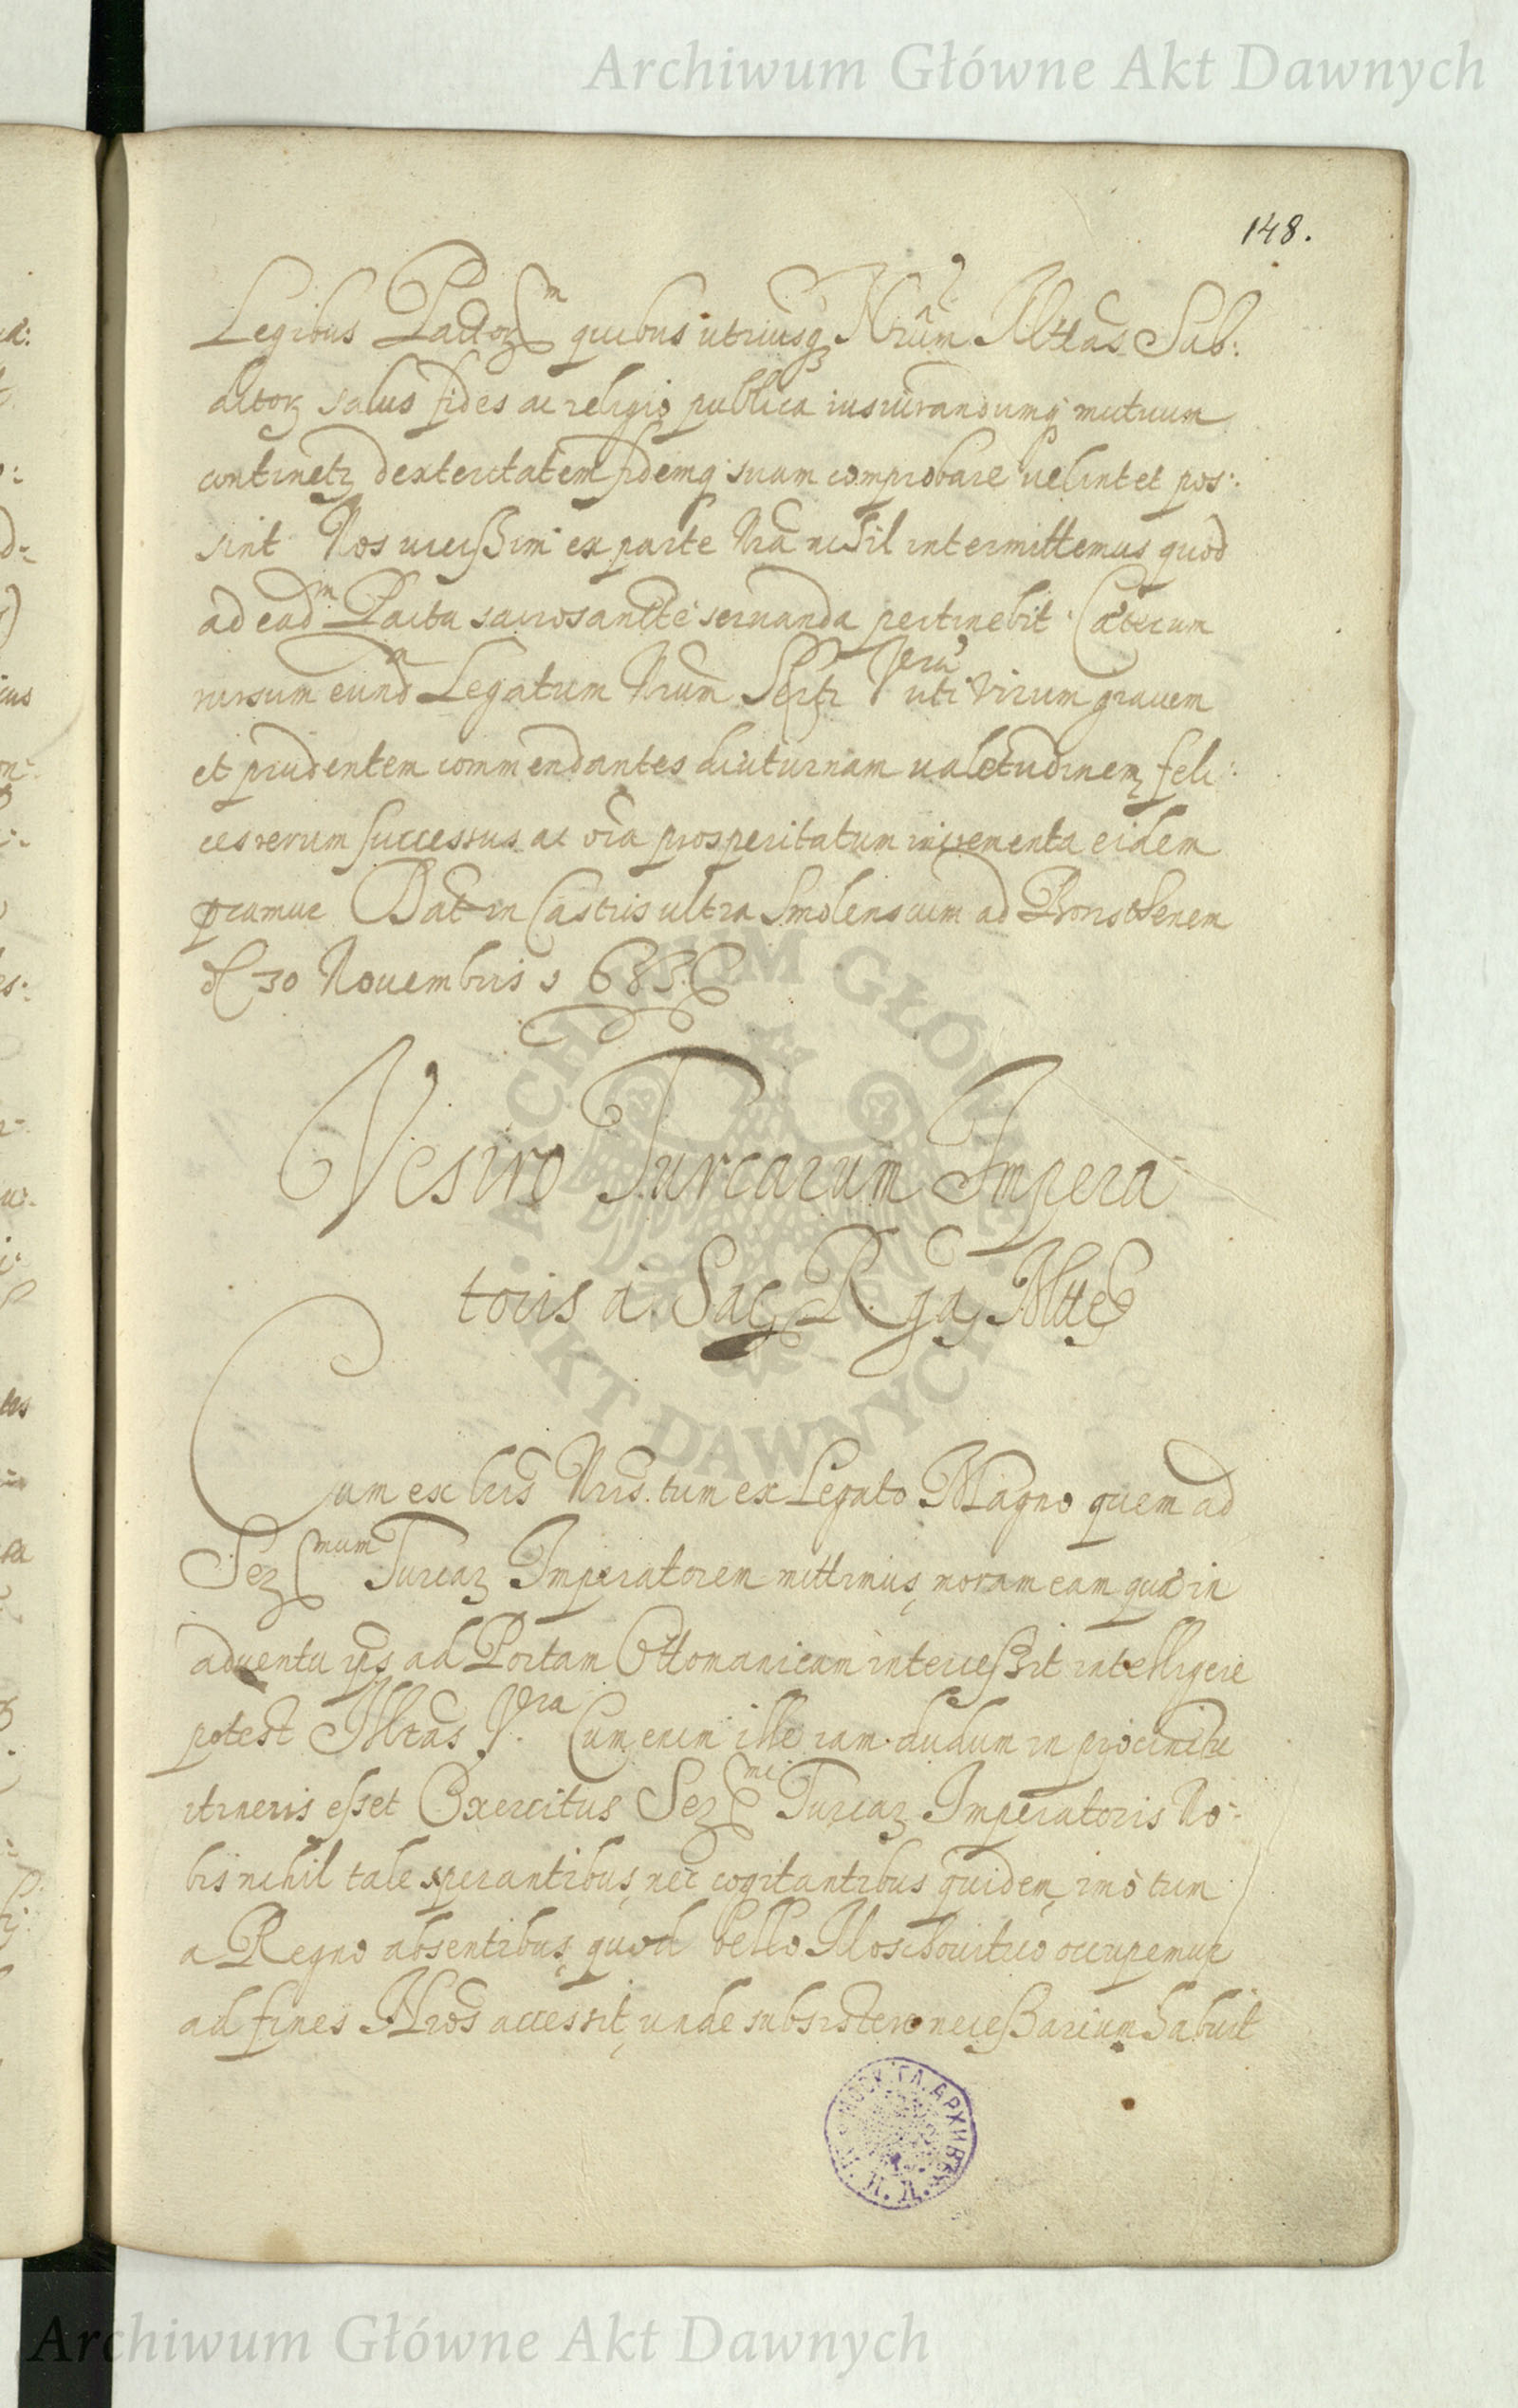 Archiwum Główne Akt Dawnych
148.
Legibus Pactorm quibus utriusq Nrum Mttas Sub:
ditor salus fides ac religio publica iusiurandumq mutuum
continetr dexteritatem fidemq suam comprobare uelint et pos:
sint Nos uicissim ex parte Nra nihil intermittemus quod
ad eadm Pacta sacrosancte seruanda pertinebit. Cæterum
rursum eund Legatum Nrum Sertti Vrae uti virum grauem
et prudentem commendantes diuturnam ualetudinem, feli:
ces rerum successus ac oia prosperitatum incrementa eidem
pcamur Dat in Castris ultra Smolenscum ad Boristhenem
d 30 Nouembris 1633.
Vesiro Turcarum Impera-
toris a Sac R. ia Mtte
Cum ex lris Nris. tum ex Legato Magno quem ad
Sermum Turcar Imperatorem mittimus, moram eam quæ in
aduentu ips ad Portam Ottomanicam intercessit intelligere
potest Mtas Vra Cum enim ille iam dudum in procinctu
itineris esset Exercitus Sermi Turcar Imperatoris No-
bis nihil tale sperantibus, nec cogitantibus quidem, imo tum
a Regno absentibus, quod bello Moschouitico occupemur
ad fines Nros accessit, unde subsistere necessarium habuit
ARCHIWUM GŁÓWNE AKT DAWNYCH
МОСК. ГЛ. АРХИВЪ М. И. Д.
Archiwum Główne Akt Dawnych